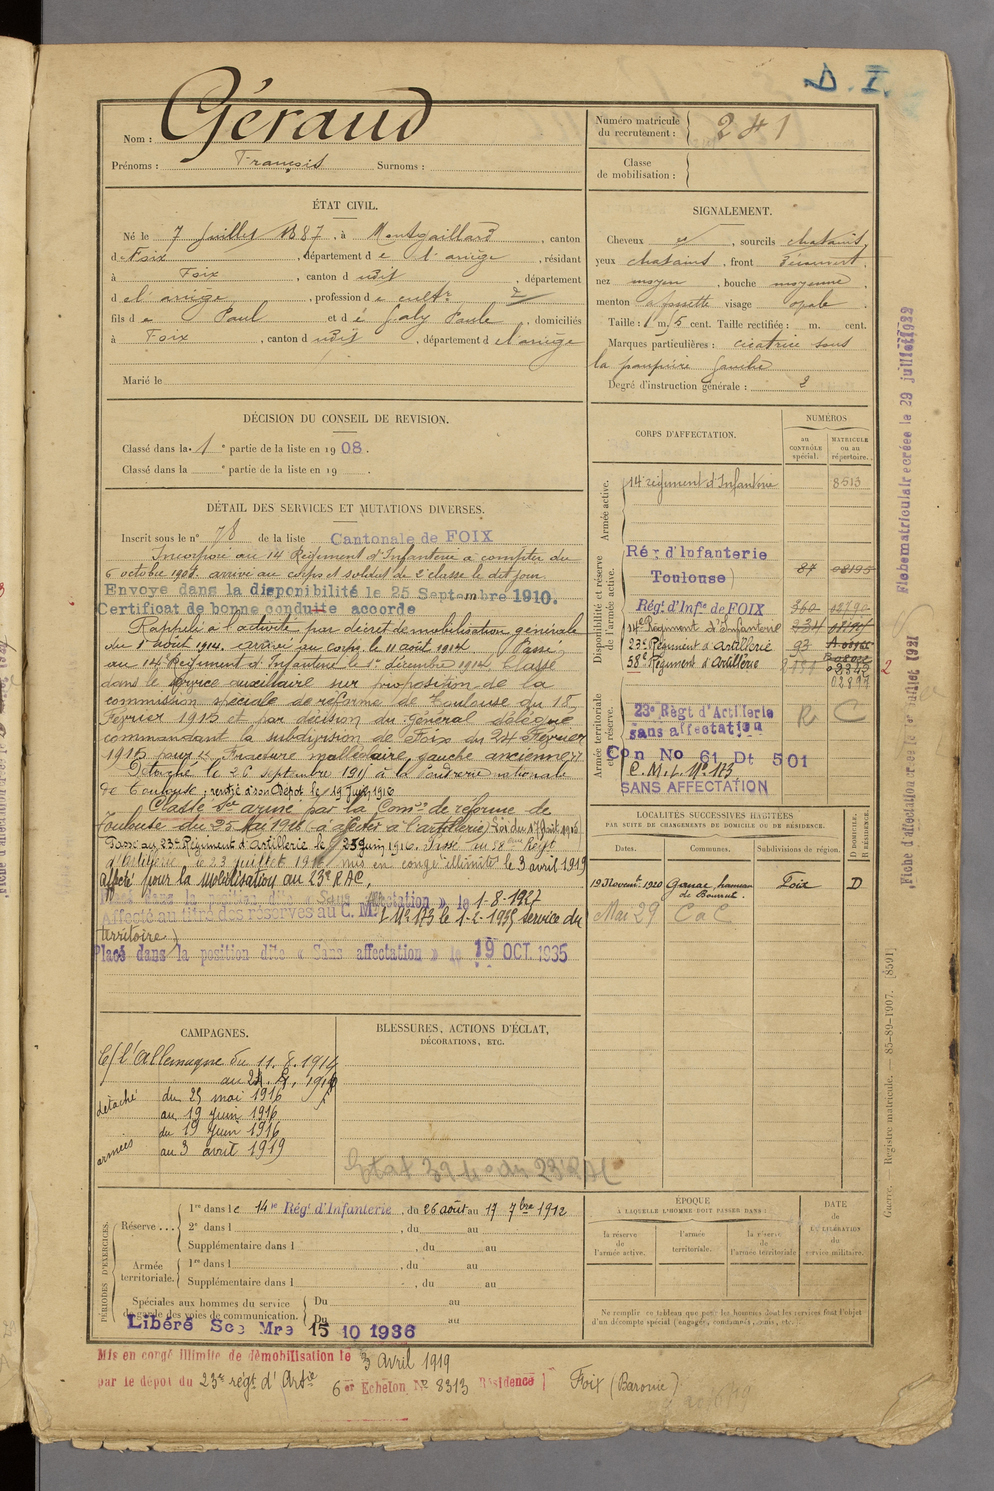 D. I.
Nom : Géraud
Prénoms : François Surnoms :
Numéro matricule du recrutement : 241
Classe de mobilisation :
ÉTAT CIVIL.
Né le 7 Juillet 1887, à Montgaillard, canton
de Foix, département de l'ariège, résidant
à Foix, canton dudit, département
de l'ariège, profession de cultr
fils de Paul et de Galy Paule, domiciliés
à Foix, canton dudit, département de l'ariège
Marié le
SIGNALEMENT.
Cheveux et, sourcils chatains,
yeux chatains, front découvert,
nez moyen, bouche moyenne,
menton à fossette visage opale.
Taille : 1 m. 5 cent. Taille rectifiée : m. cent.
Marques particulières : cicatrice sous
la paupière gauche
Degré d'instruction générale : 2
DÉCISION DU CONSEIL DE REVISION.
Classé dans la 1e partie de la liste en 1908.
Classé dans la e partie de la liste en 19 .
DÉTAIL DES SERVICES ET MUTATIONS DIVERSES.
Inscrit sous le n° 78 de la liste Cantonale de FOIX
Incorporé au 14 Régiment d'Infanterie à compter du
6 octobre 1908. arrivé au corps et soldat de 2e classe le dit jour.
Envoyé dans la disponibilité le 25 Septembre 1910.
Certificat de bonne conduite accordé
Rappelé à l'activité par décret de mobilisation générale
du 1er août 1914. arrivé au corps le 11 août 1914. Passé
au 14 Régiment d'Infanterie le 1er décembre 1914. Classé
dans le service auxiliaire sur proposition de la
commission spéciale de réforme de Toulouse du 18
Février 1915 et par décision du Général délégué
commandant la subdivision de Foix du 24 Février
1915 pour "Fracture malléolaire gauche ancienne"
Détaché le 26 septembre 1915 à la Poudrerie nationale
de Toulouse ; rentré à son Dépôt le 19 Juin 1916
Classé sce armé par la Comon de réforme de
Toulouse du 25 Mai 1916 à affecter à l'artillerie (Loi du 17 Août 1915)
Passé au 23e Régiment d'Artillerie le 25 juin 1916. Passé au 58ème Regt
d'Artillerie le 23 juillet mis en congé illimité le 3 avril 1919
Affecté pour la mobilisation au 23e RAC,
Placé dans la position dite « Sans affectation » le 1-8-1927
Affecté au titre des réserves au C. M. I. N° 173 le 1-2-1935 (service du
territoire)
Placé dans la position dite « Sans affectation » le 19 OCT. 1935
CORPS D'AFFECTATION.
NUMÉROS
au CONTRÔLE spécial.
MATRICULE ou au répertoire.
Armée active.
14e régiment d'Infanterie 8513
Disponibilité et réserve de l'armée active.
Rég. d'Infanterie
Toulouse) 87 08195
Régt d'Infie de FOIX 360
14e Régiment d'Infanterie 334
23e Régiment d'Artillerie 93
58e Régiment d'Artillerie
02897
2
Armée territoriale et réserve.
23e Régt d'Artillerie R C
sans affectation
Con No 61 Dt 501
C. M. I. N° 173
SANS AFFECTATION
LOCALITÉS SUCCESSIVES HABITÉES
PAR SUITE DE CHANGEMENTS DE DOMICILE OU DE RÉSIDENCE.
Dates. Communes. Subdivisions de région. D DOMICILE. R RÉSIDENCE.
19 Novembre 1920 Ganac hameau Foix D
Mai 29 C a C
CAMPAGNES.
C/ l'Allemagne du 11. 8. 1914
détaché du 25 mai 1916
au 19 juin 1916
armées du 19 juin 1916
au 3 avril 1919
BLESSURES, ACTIONS D'ÉCLAT,
DÉCORATIONS, ETC.
PÉRIODES D'EXERCICES.
Réserve ... 1re dans le 14e Régt d'Infanterie, du 26 août au 17 7bre 1912
2e dans l , du au
Supplémentaire dans l , du au
Armée territoriale. 1re dans l , du au
Supplémentaire dans l , du au
Spéciales aux hommes du service de garde des voies de communication. Du au
Du au
Libéré Sce Mre 15 10 1936
ÉPOQUE
À LAQUELLE L'HOMME DOIT PASSER DANS :
la réserve de l'armée active.
l'armée territoriale.
la réserve de l'armée territoriale
DATE de LA LIBÉRATION du service militaire.
Ne remplir ce tableau que pour les hommes dont les services font l'objet
d'un décompte spécial (engagés, condamnés, omis, etc.)
Mis en congé illimité de démobilisation le 3 avril 1919
par le dépôt du 23e régt d'Artie 6er Echelon, N° 8313 Résidence Foix (Baronie)
Fiche matriculaire créée le 29 juillet 1922
Fiche d'affectation créée le 1er juillet 1921
Guerre. — Registre matricule. — 85-89-1907. [8591]